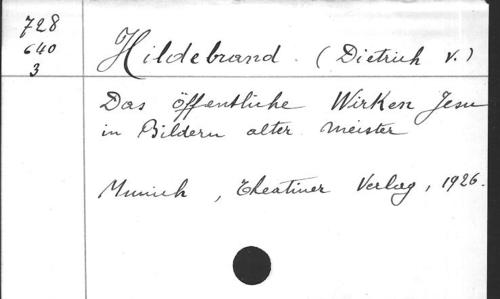 728
640
3
Hildebrand. (Dietrich v.)
Das öffentliche Wirken Jesu
in Bildern alter Meister
Munich, Theatiner Verlag, 1926.